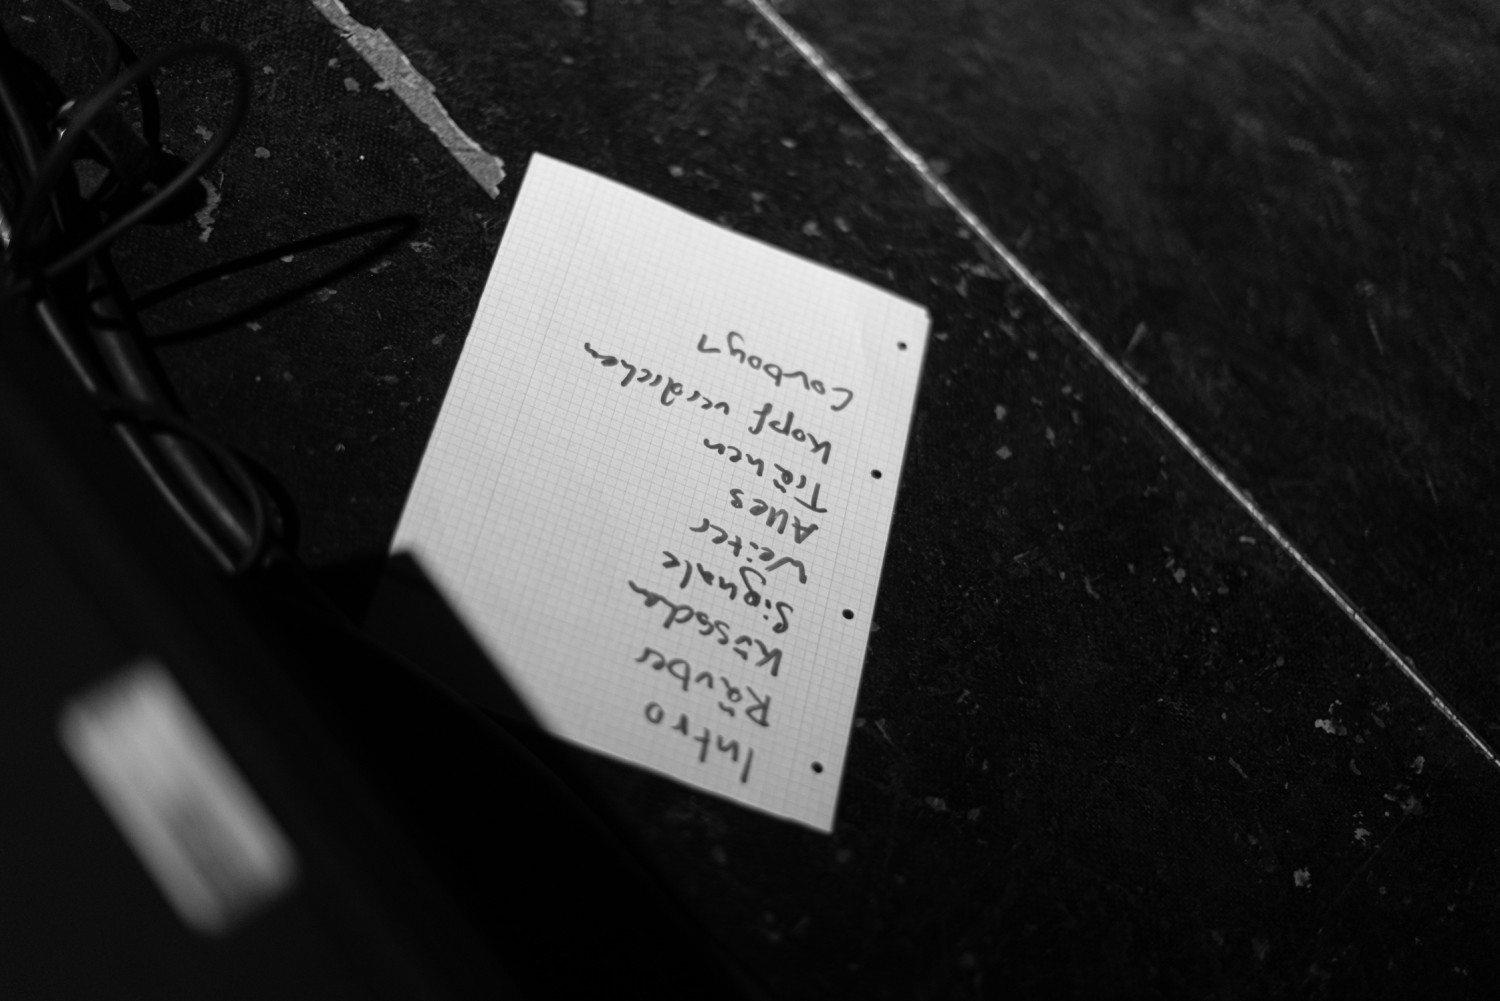 Intro
Räuber
Küssden
Signale
Weiter
Alles
Tränen
Kopf verdrehen
Cowboy 1